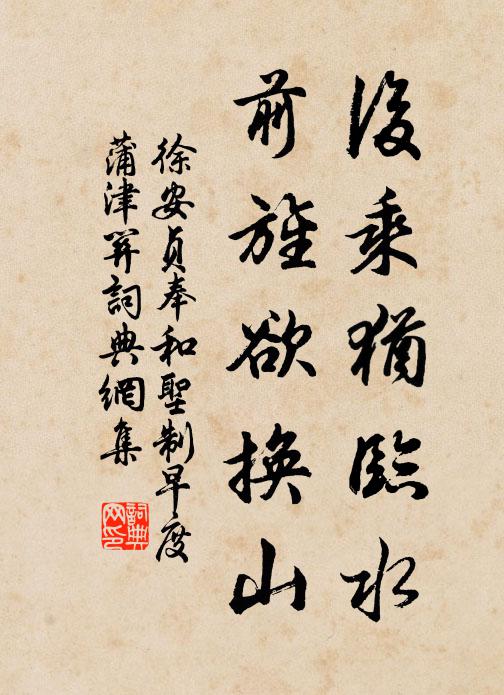 後乘猶臨水
前旌欲換山
徐安貞奉和聖制早度
蒲津關詞典網集
詞典网印